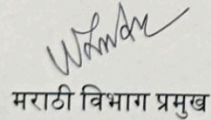 मराठी विभाग प्रमुख